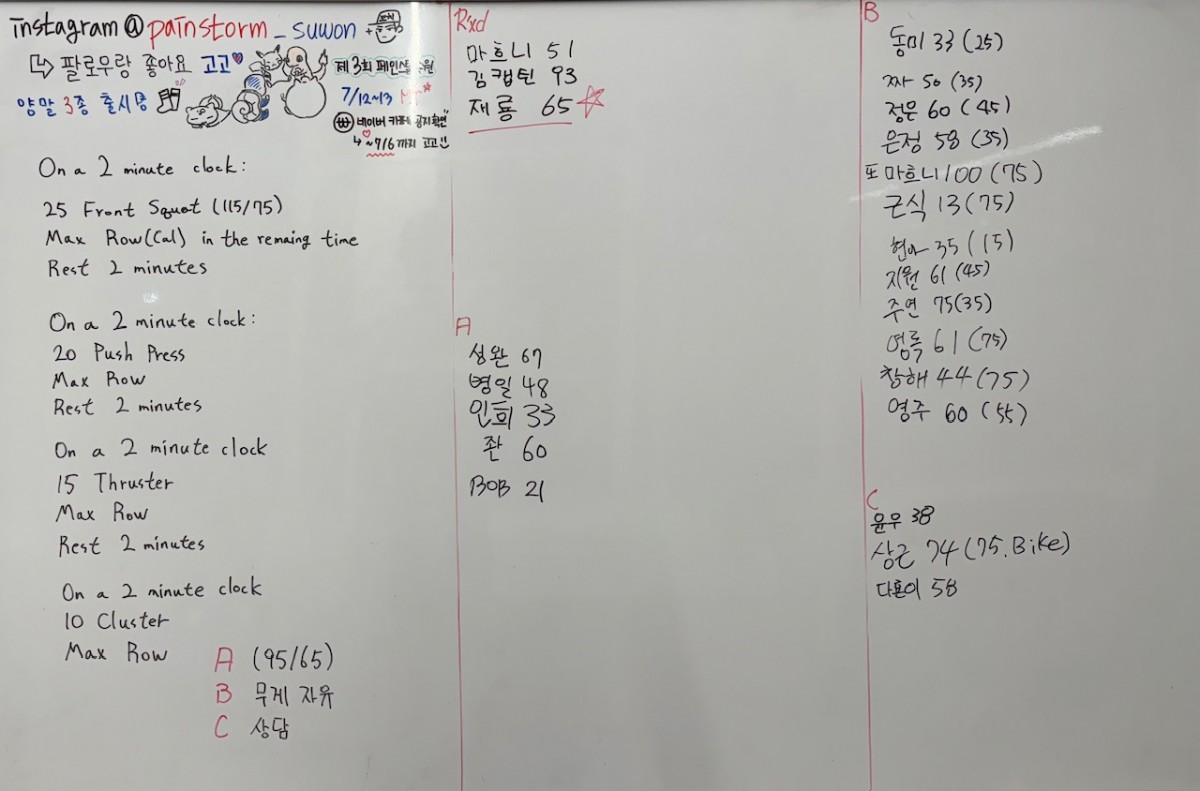 instagram @painstorm_suwon
↳ 팔로우랑 좋아요 고고♥
양말 3종 출시중
제 3회 페인스톰 수원
7/12~13
네이버 카페에 공지확인
↳ ~7/6까지 고고!!
On a 2 minute clock:
25 Front Squat (115/75)
Max Row(Cal) in the remaing time
Rest 2 minutes
On a 2 minute clock:
20 Push Press
Max Row
Rest 2 minutes
On a 2 minute clock
15 Thruster
Max Row
Rest 2 minutes
On a 2 minute clock
10 Cluster
Max Row
A (95/65)
B 무게 자유
C 상담
Rxd
마흐니 51
김캡틴 93
재룡 65☆
A
성완 67
병일 48
인희 33
좐 60
BOB 21
B
동미 33 (25)
짜 50 (35)
정은 60 (45)
은정 58 (35)
또 마흐니 100 (75)
근식 13 (75)
현아 35 (15)
지원 61 (45)
주연 75(35)
영록 61 (75)
창해 44 (75)
영주 60 (55)
C
윤우 38
상근 74 (75.Bike)
다훈이 58